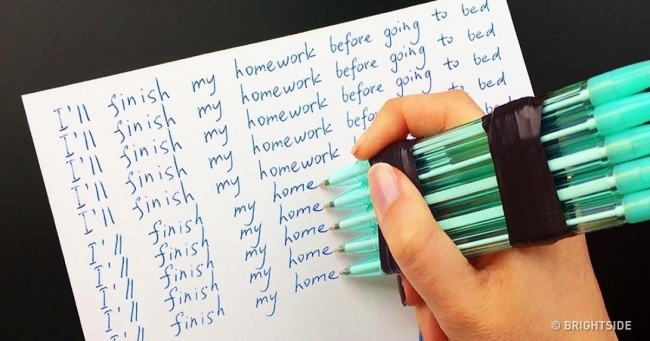 I'll finish my homework before going to bed
I'll finish my homework before going to bed
I'll finish my homework before going to bed
I'll finish my homework befo bed
I'll finish my homework
I'll finish my home
I'll finish my home
I'll finish my home
I'll finish my home
I'll finish my home
© BRIGHTSIDE